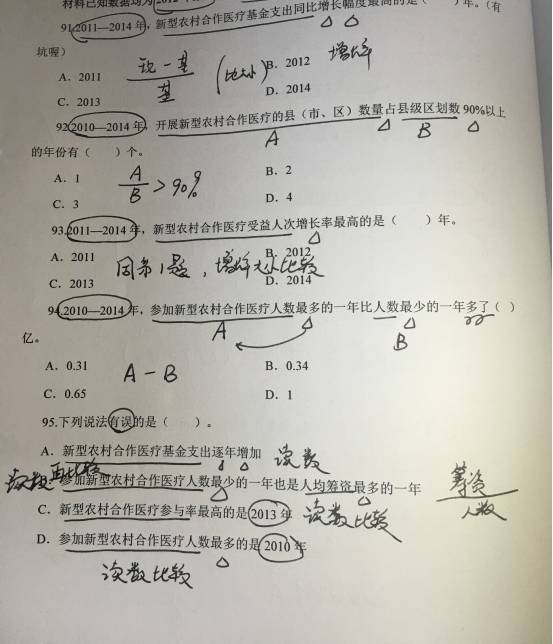 材料已知数据均为
年。（有
91.2011—2014年，新型农村合作医疗基金支出同比增长幅度最高的是（
坑喔）
现－基
基
(比大小)
增长率
A．2011
B．2012
C．2013
D．2014
92.2010—2014年，开展新型农村合作医疗的县（市、区）数量占县级区划数90%以上
A
B
的年份有（ ）个。
A．1
B．2
A
B
>90%
C．3
D．4
93.2011—2014年，新型农村合作医疗受益人次增长率最高的是（ ）年。
A．2011
B．2012
同第1题，增长率大小比较
C．2013
D．2014
94.2010—2014年，参加新型农村合作医疗人数最多的一年比人数最少的一年多了（ ）
A
B
亿。
A．0.31
B．0.34
A－B
C．0.65
D．1
95.下列说法有误的是（ ）。
A．新型农村合作医疗基金支出逐年增加
读数
参加新型农村合作医疗人数最少的一年也是人均筹资最多的一年
读数再比较
筹资
人数
C．新型农村合作医疗参与率最高的是2013年
读数比较
D．参加新型农村合作医疗人数最多的是2010年
读数比较